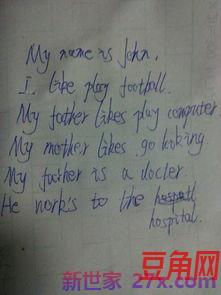 My name is John.
I like play football.
My father likes play computer
My mother likes go looking
My father is a docter.
He works to the
hospital.
豆角网
新世家 27x.com